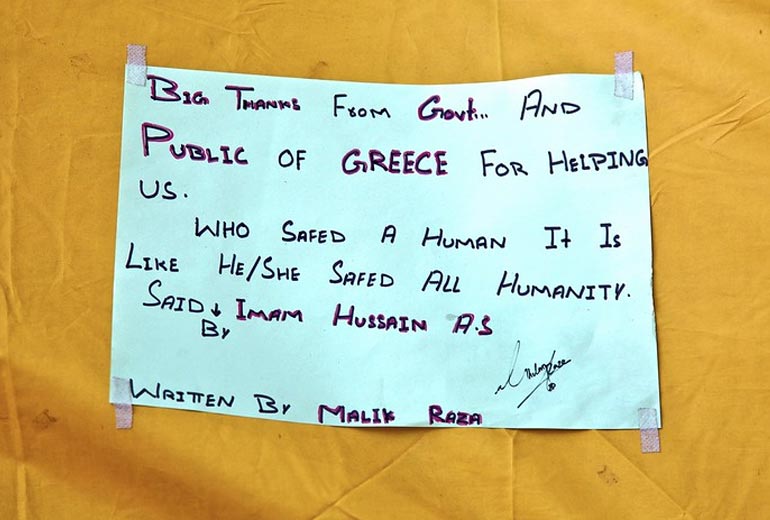 BIG THANKS FROM Govt... AND
PUBLIC OF GREECE FOR HELPING
US.
WHO SAFED A HUMAN It Is
LIKE HE/SHE SAFED ALL HUMANITY.
SAID↓ IMAM HUSSAIN A.S
By
WRITTEN By MALIK RAZA